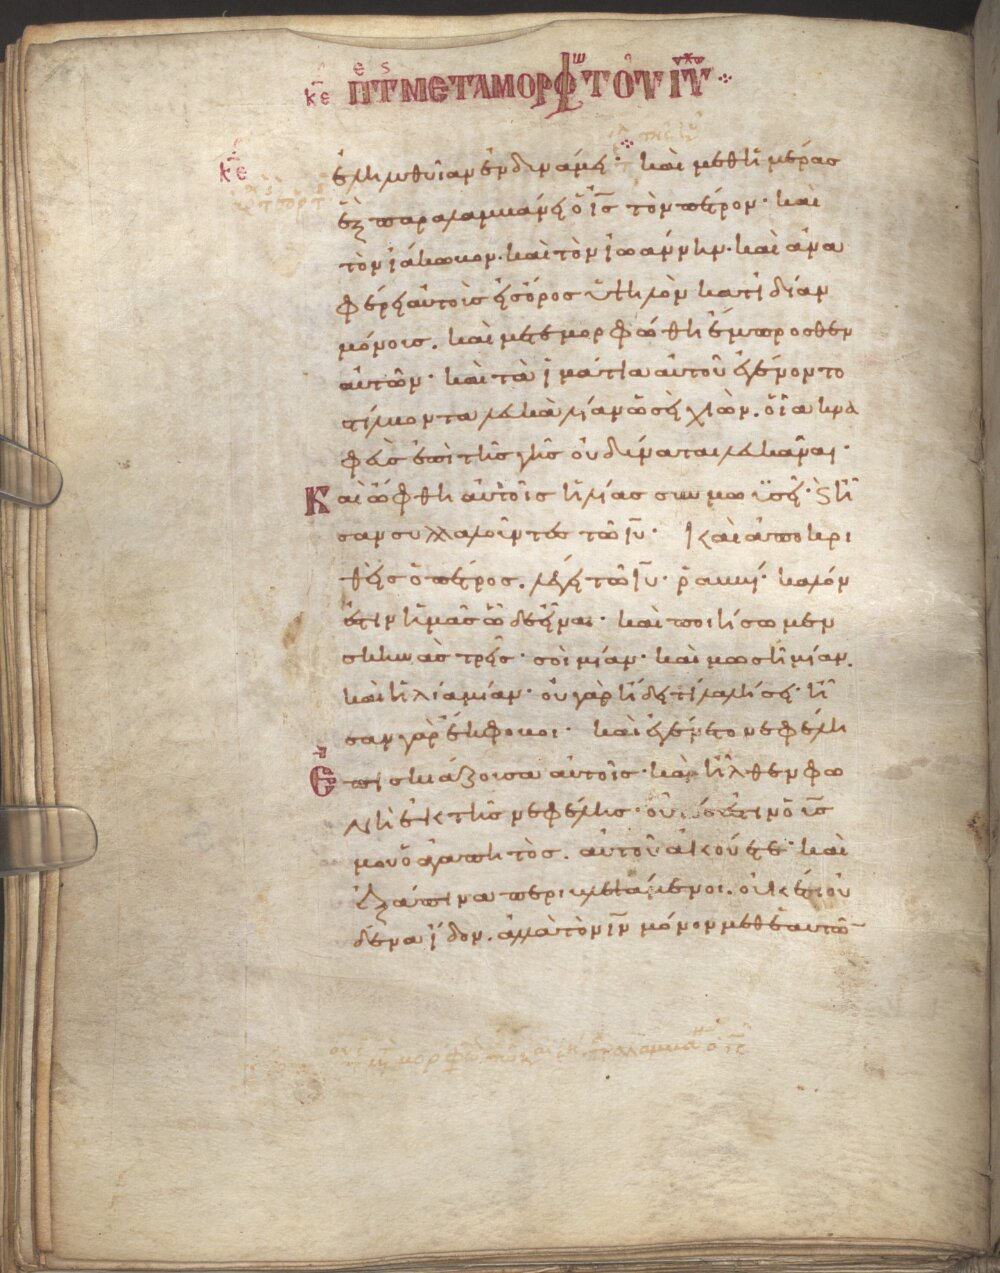 κε ΠΤ ΜΕΤΑΜΟΡΦ ΤΟΥ ΙΥ
κε
ἐλιλυθυῖαν ἐν δυνάμει· καὶ μεθ ἡμέρας
ἓξ παραλαμβάνει ὁ ις τὸν πέτρον· καὶ
τὸν ἰάκωβον· καὶ τὸν ἰωάννην· καὶ ἀνα
φέρει αὐτοὺς εἰς ὄρος ὑψηλὸν κατ ἰδίαν
μόνους. καὶ μετεμορφώθη ἔμπροσθεν
αὐτῶν· καὶ τὰ ἱμάτια αὐτοῦ ἐγένοντο
στίλβοντα λευκὰ λίαν ὡσεὶ χιών. οἷα κνα
φεὺς ἐπὶ τῆς γῆς οὐ δύναται λευκᾶναι·
Καὶ ὤφθη αὐτοῖς ἠλίας συν μωϋσεῖ· καὶ ἦ
σαν συλλαλοῦντες τῶ ιυ· Καὶ ἀποκρι
θεὶς ὁ πέτρος. λέγει τῶ ιυ· ῥαββί· καλόν
ἐστιν ἡμᾶς ὧδε εἶναι· καὶ ποιήσωμεν
σκηνὰς τρεῖς· σοὶ μίαν· καὶ μωσῆ μίαν.
καὶ ἠλία μίαν· οὐ γὰρ ἤδει τί λαλήσει· ἦ
σαν γὰρ ἔκφοβοι· καὶ ἐγένετο νεφέλη
Ἐπισκιάζουσα αὐτοῖς· καὶ ἦλθεν φω
νὴ ἐκ τῆς νεφέλης· οὗτός ἐστιν ὁ υς
μου ὁ ἀγαπητὸς. αὐτοῦ ἀκούετε· καὶ
ἐξάπινα περιβλεψάμενοι. οὐκέτι οὐ
δένα ἴδον. ἀλλὰ τὸν ιν μόνον μεθ ἑαυτῶ